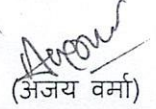 (अजय वर्मा)